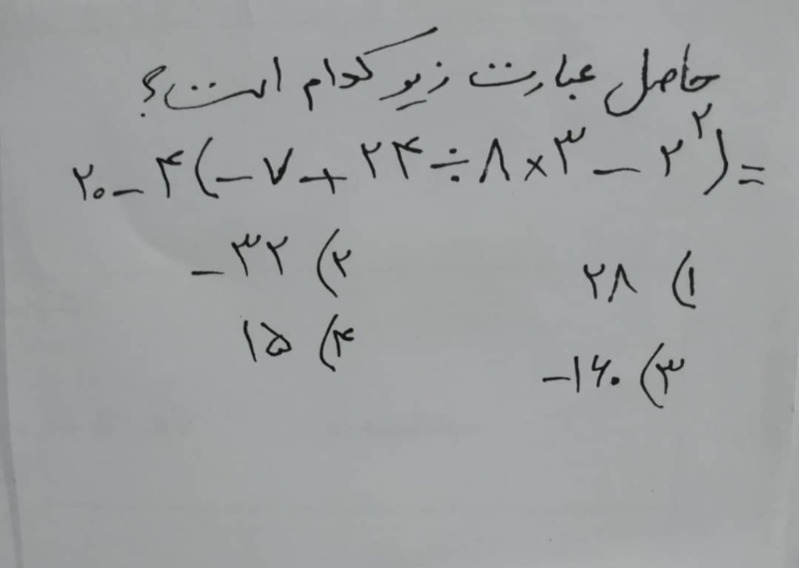 حاصل عبارت زیر کدام است؟
۲۰ − ۴(−۷ + ۲۴ ÷ ۸ × ۳ − ۲²) =
۱) ۲۸ ۲) −۳۲
۳) −۱۶۰ ۴) ۱۵